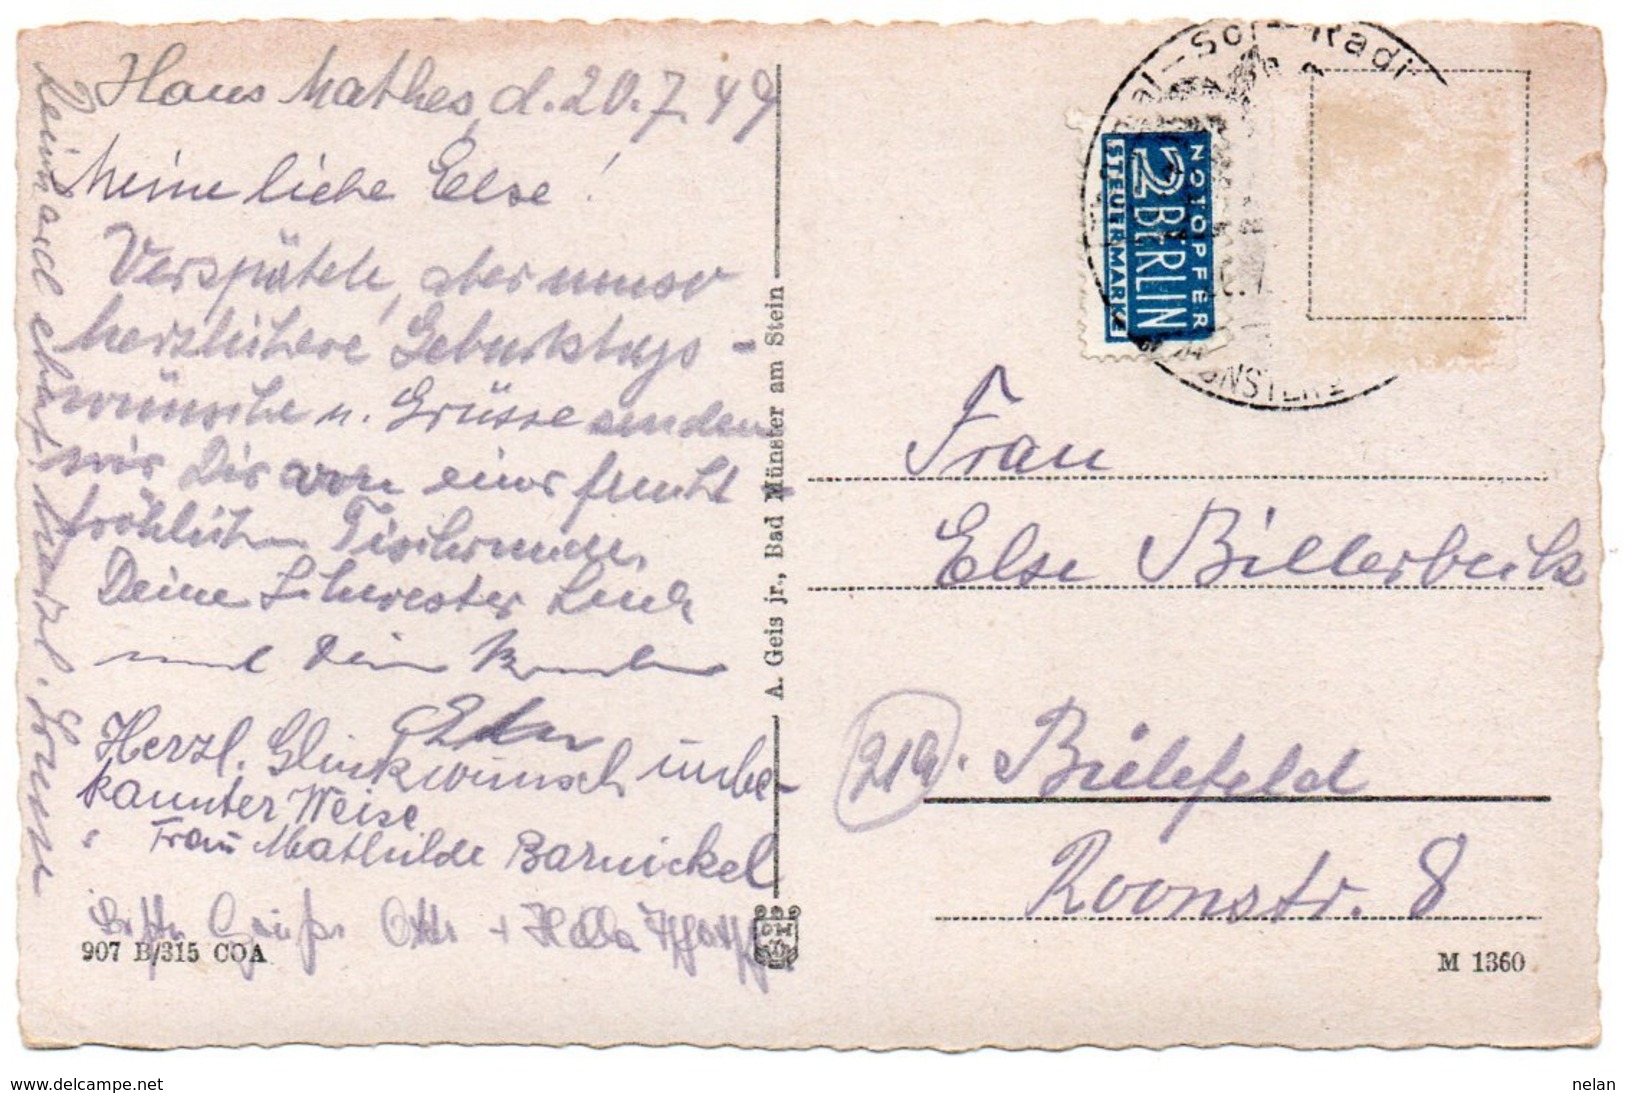 Haus Mathes, d. 20.7.49
Meine liebe Else!
Verspätete, aber umso
herzlichere Geburtstags-
wünsche u. Grüsse senden
wir Dir von einer feucht-
fröhlichen Tischrunde.
Deine Schwester
und Dein
Herzl. Glückwunsch unbe-
kannter Weise
Frau Mathilde Barnickel
Otto + Hella
907 B/315 COA
A. Geis jr., Bad Münster am Stein
NOTOPFER
2 BERLIN
STEUERMARKE
Frau
Else Billerbeck
21a. Bielefeld
Roonstr. 8
M 1360
www.delcampe.net
nelan